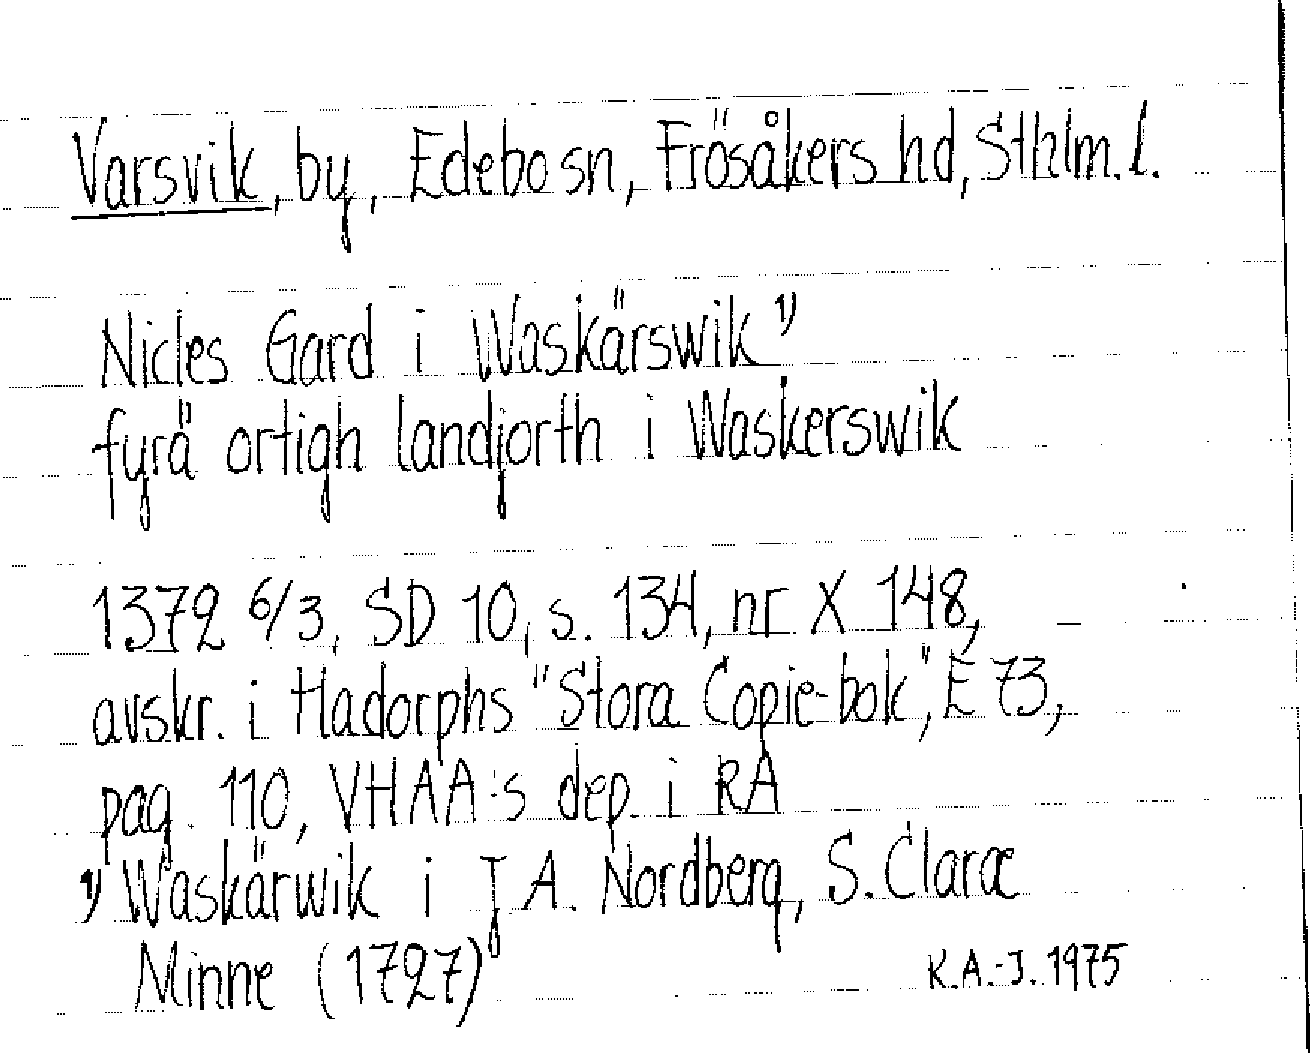 Varsvik, by, Edebo sn, Frösåkers hd, Sthlm. l.
Nicles Gard i Waskärswik 1)
fyrä ortigh landjorth i Waskerswik
1372 6/3, SD 10, s. 134, nr X 148,
avskr. i Hadorphs "Stora Copie-bok", E 73,
pag. 110, VHAA:s dep. i RA
1) Waskärwik i J A. Nordberg, S. Claræ
Minne (1727)
K.A.-J. 1975